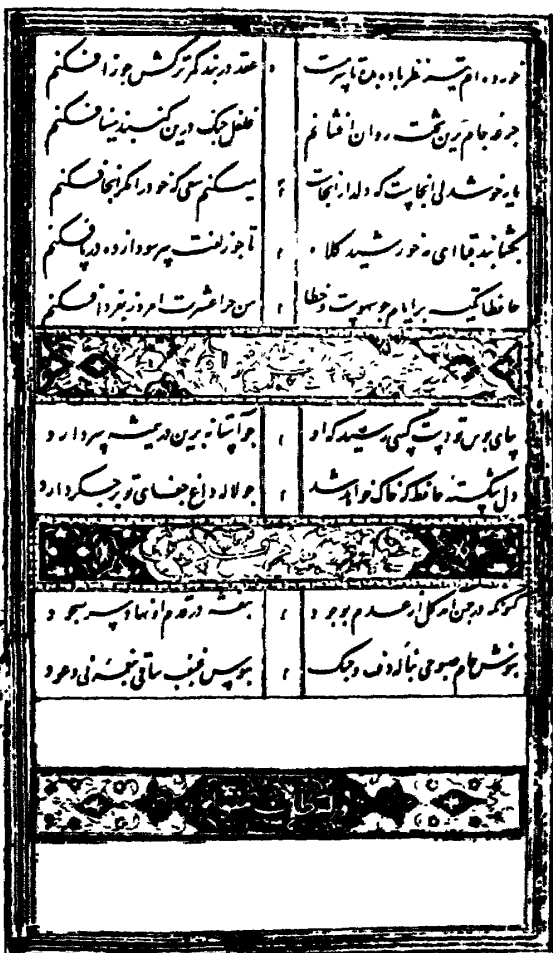 خورده ام تیر نظر باده بده تا سرمست عقده در بند کمر ترکش جوزا فکنم
جرعه جام برین تخت روان افشانم غلغل چنگ درین گنبد مینا فکنم
مایه خوشدلی انجاست که دلدار انجاست میکنم سعی که خود را مگر انجا فکنم
بگشا بند قبا ای مه خورشید کلاه تا چو زلفت سر سودازده در پا فکنم
حافظا تکیه بر ایام چو سهوست و خطا من چرا عشرت امروز بفردا فکنم
بپای بوس تو دست کسی رسید که او چو آستانه برین در همیشه سر دارد
دل شکسته حافظ که خاک خواهد شد چو لاله داغ جفای تو بر جگر دارد
کنونکه در چمن امد گل از عدم بوجود بنفشه در قدم او نهاد سر بسجود
بنوش جام صبوحی بناله دف و چنگ ببوس غبغب ساقی بنغمه نی و عود